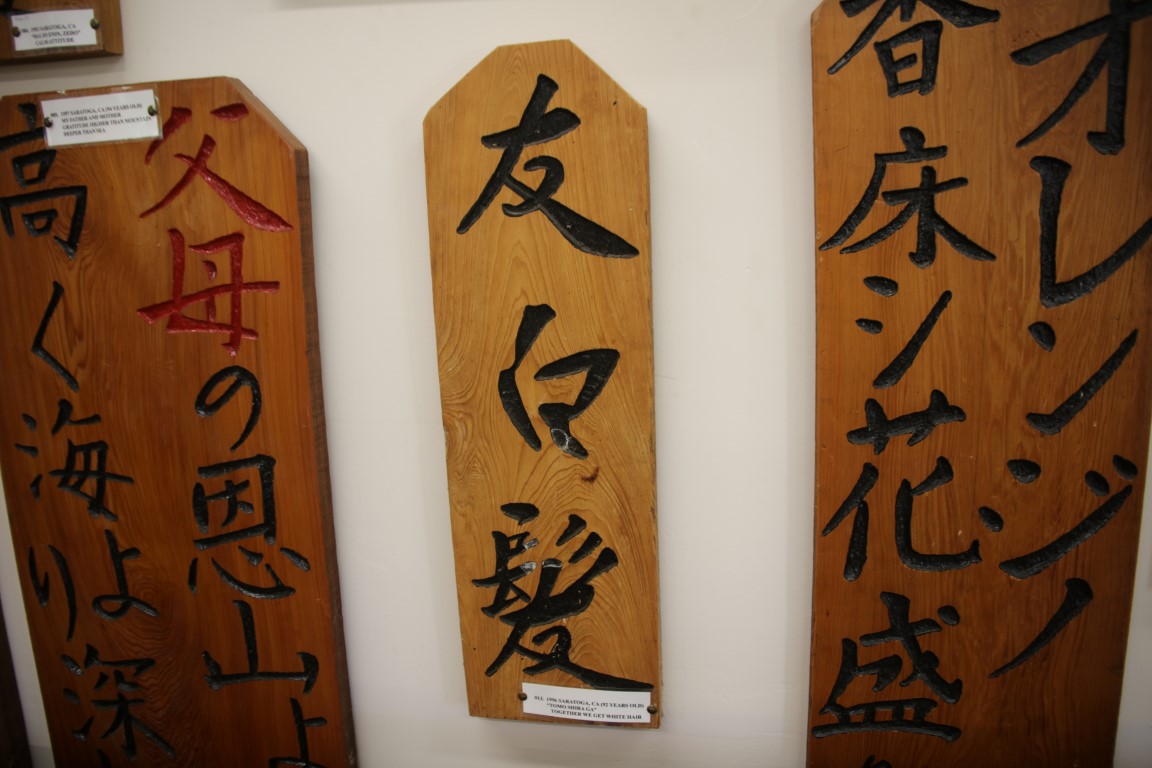 父母の恩山よ
高く海より深
005. 1997 SARATOGA, CA (94 YEARS OLD)
MY FATHER AND MOTHER
GRATITUDE HIGHER THAN MOUNTAIN
DEEPER THAN SEA
友白髪
1996 SARATOGA, CA (92 YEARS OLD)
"TOMO SHIRA GA"
TOGETHER WE GET WHITE HAIR
オレンジノ
香床シ花盛
SARATOGA, CA